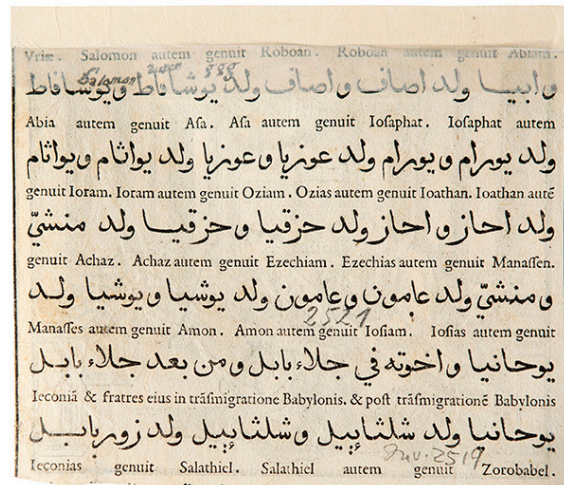 Vriæ. Salomon autem genuit Roboan. Roboan autem genuit Abiam.
Salomon
وابيا ولد اصاف واصاف ولد يوشافاط ويوشافاط
Abia autem genuit Asa. Asa autem genuit Iosaphat. Iosaphat autem
ولد يورام ويورام ولد عوزيا وعوزيا ولد يواثام ويواثام
genuit Ioram. Ioram autem genuit Oziam. Ozias autem genuit Ioathan. Ioathan autē
ولد احاز واحاز ولد حزقيا وحزقيا ولد منشيّ
genuit Achaz. Achaz autem genuit Ezechiam. Ezechias autem genuit Manassen.
ومنشيّ ولد عامون وعامون ولد يوشيا ويوشيا ولد
2521
Manasses autem genuit Amon. Amon autem genuit Iosiam. Iosias autem genuit
يوحانيا واخوته في جلاء بابل ومن بعد جلاء بابل
Ieconiā & fratres eius in trāsmigratione Babylonis. & post trāsmigrationē Babylonis
يوحانيا ولد شلثايبيل وشلثايبيل ولد زوربابل
Inv. 2519
Ieconias genuit Salathiel. Salathiel autem genuit Zorobabel.